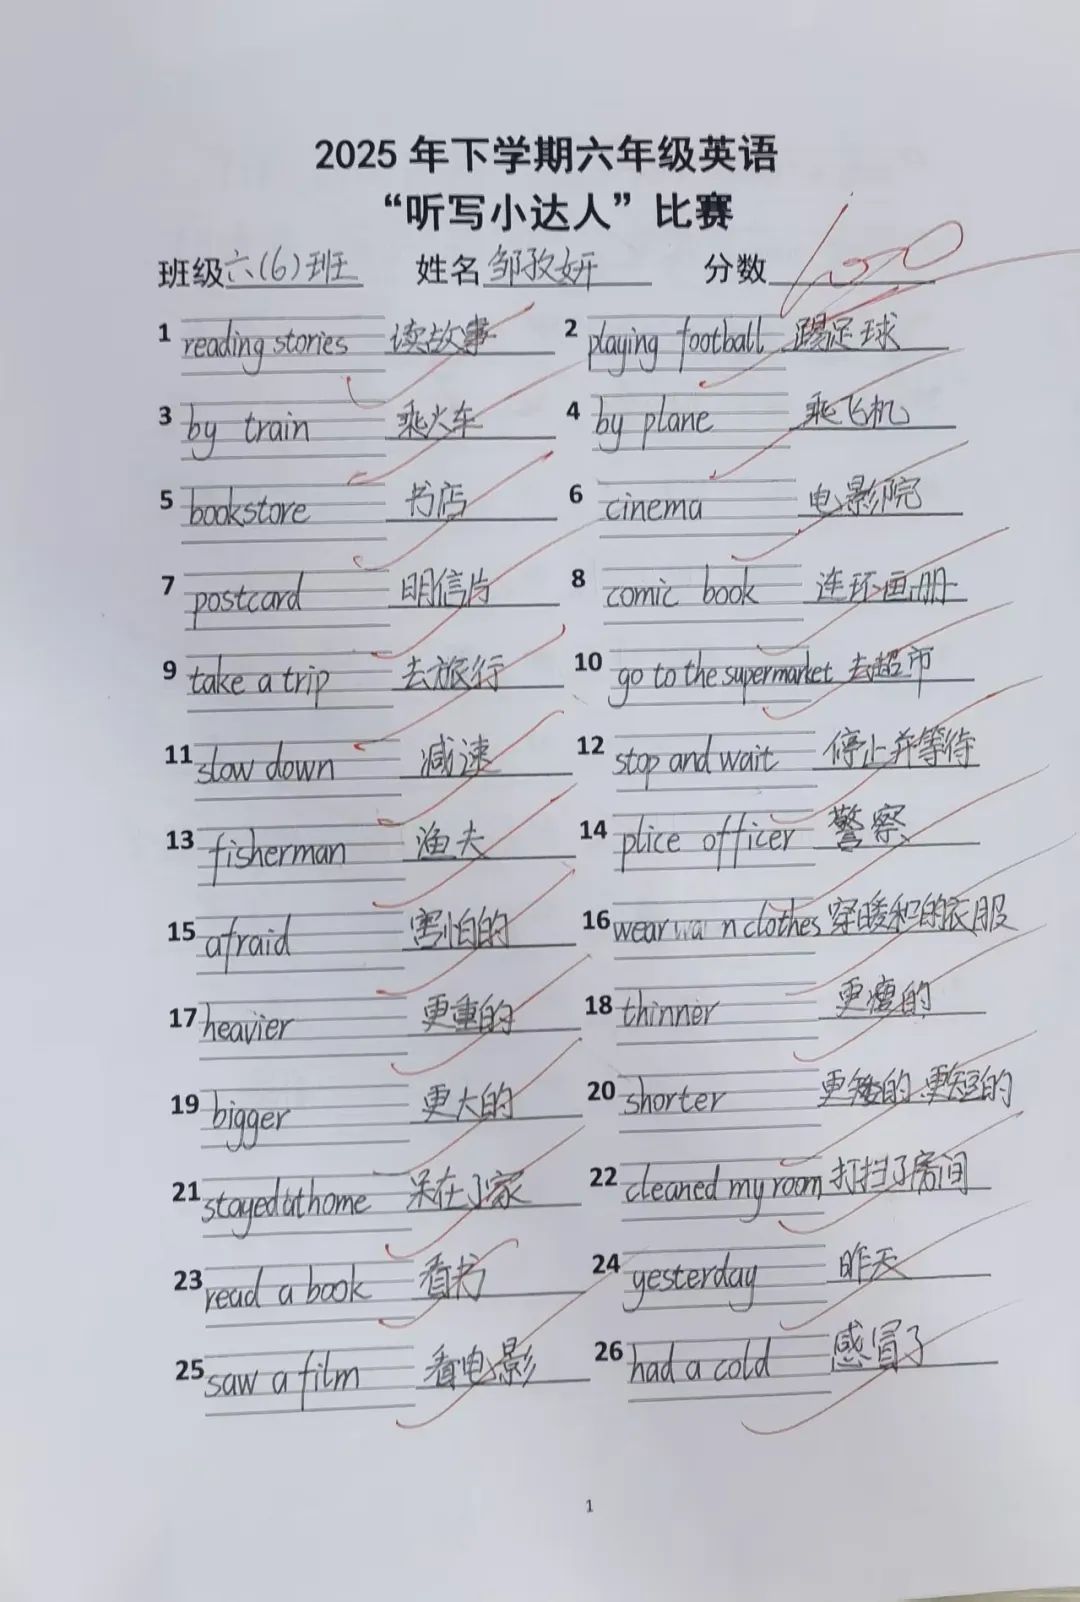 2025年下学期六年级英语
“听写小达人”比赛
班级六(6)班 姓名邹孜妍 分数100
1 reading stories 读故事 2 playing football 踢足球
3 by train 乘火车 4 by plane 乘飞机
5 bookstore 书店 6 cinema 电影院
7 postcard 明信片 8 comic book 连环画册
9 take a trip 去旅行 10 go to the supermarket 去超市
11 slow down 减速 12 stop and wait 停止并等待
13 fisherman 渔夫 14 plice officer 警察
15 afraid 害怕的 16 wear wa n clothes 穿暖和的衣服
17 heavier 更重的 18 thinner 更瘦的
19 bigger 更大的 20 shorter 更矮的 更短的
21 stayed at home 呆在了家 22 cleaned my room 打扫了房间
23 read a book 看书 24 yesterday 昨天
25 saw a film 看电影 26 had a cold 感冒了
1